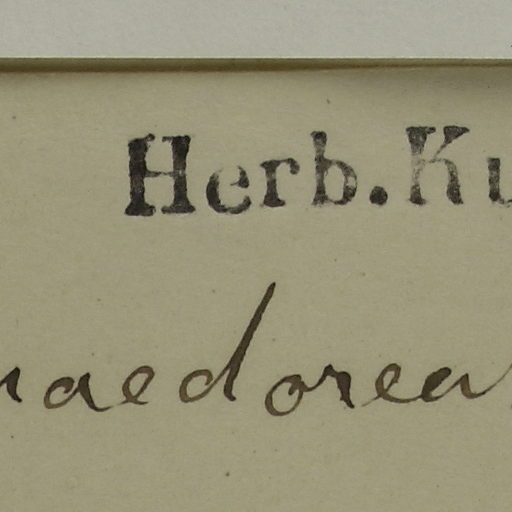 Herb. Ku
haedorea